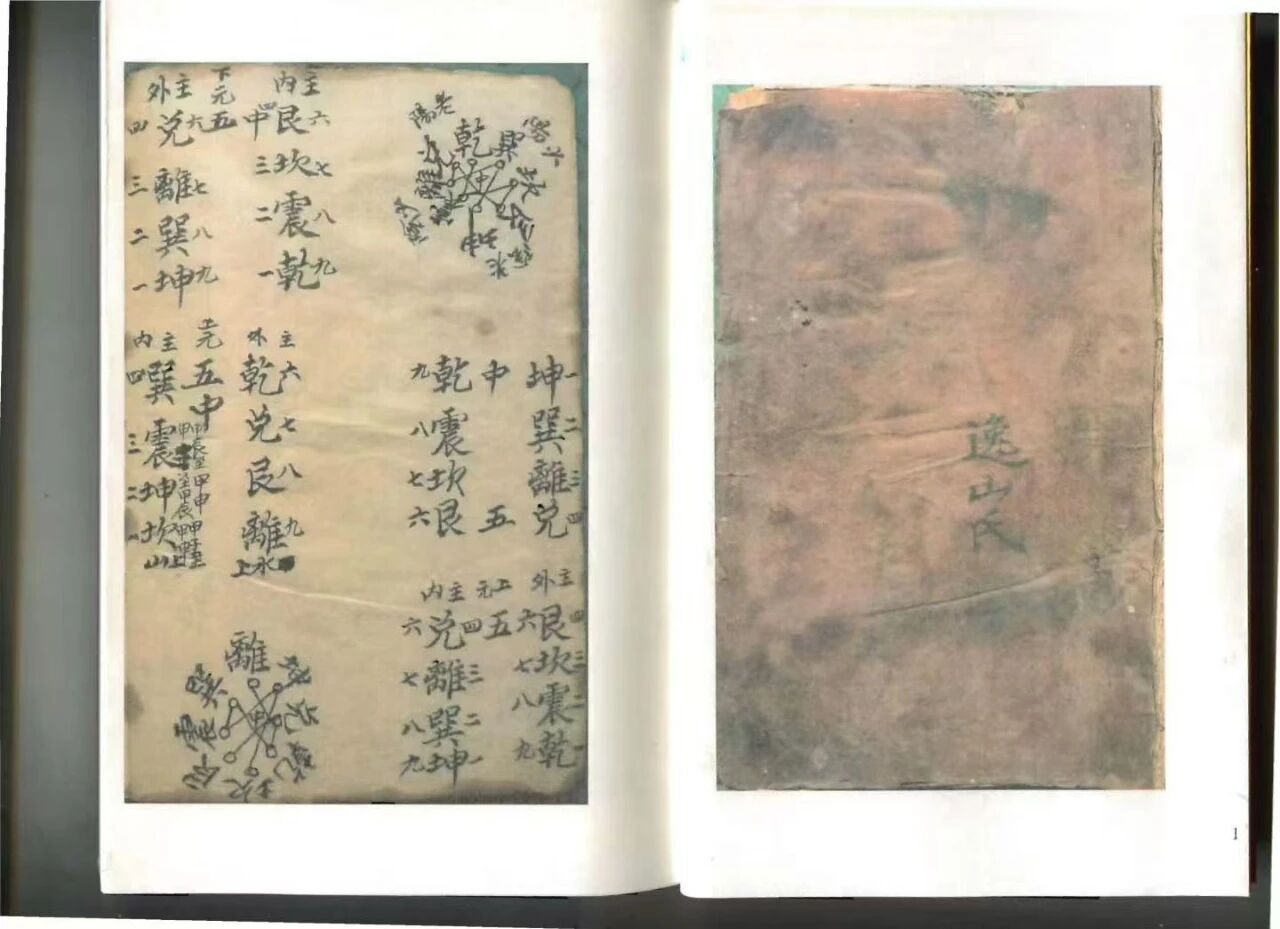 逸山氏
1
老陽
乾
巽
坎
艮
坤
離
中
內主
四艮六
三坎七
二震八
一乾九
中
下元五
外主
四兌六
三離七
二巽八
一坤九
坤一
巽二
離三
兌四
中五
九乾
八震
七坎
六艮
外主
六艮四
七坎三
八震二
九乾一
上元五
內主
六兌四
七離三
八巽二
九坤一
外主
乾六
兌七
艮八
離九
上水
上元五中
內主
四巽
三震
二坤
一坎
山上
離
坤
兌
乾
坎
艮
震
巽
中